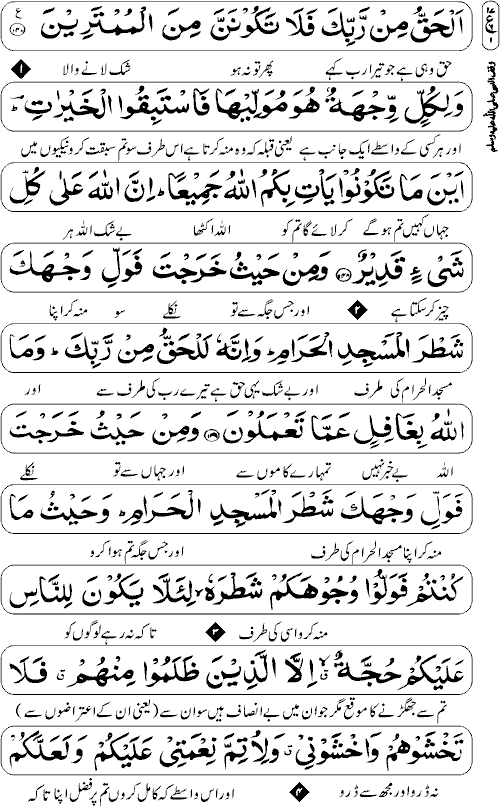 اَلْحَقُّ مِنْ رَّبِّكَ فَلَا تَكُوْنَنَّ مِنَ الْمُمْتَرِيْنَ
حق وہی ہے جو تیرا رب کہے پھر تو نہ ہو شک لانے والا
وَلِكُلٍّ وِّجْهَةٌ هُوَ مُوَلِّيْهَا فَاسْتَبِقُوا الْخَيْرٰتِ
اور ہر کسی کے واسطے ایک جانب ہے یعنی قبلہ کہ وہ منہ کرتا ہے اس طرف سو تم سبقت کرو نیکیوں میں
اَيْنَ مَا تَكُوْنُوْا يَاْتِ بِكُمُ اللّٰهُ جَمِيْعًا اِنَّ اللّٰهَ عَلٰى كُلِّ
جہاں کہیں تم ہو گے کر لائے گا تم کو اللہ اکٹھا بے شک اللہ ہر
شَيْءٍ قَدِيْرٌ وَمِنْ حَيْثُ خَرَجْتَ فَوَلِّ وَجْهَكَ
چیز کر سکتا ہے اور جس جگہ سے تو نکلے سو منہ کر اپنا
شَطْرَ الْمَسْجِدِ الْحَرَامِ وَاِنَّهٗ لَلْحَقُّ مِنْ رَّبِّكَ وَمَا
مسجد الحرام کی طرف اور بے شک یہی حق ہے تیرے رب کی طرف سے اور
اللّٰهُ بِغَافِلٍ عَمَّا تَعْمَلُوْنَ وَمِنْ حَيْثُ خَرَجْتَ
اللہ بے خبر نہیں تمہارے کاموں سے اور جہاں سے تو نکلے
فَوَلِّ وَجْهَكَ شَطْرَ الْمَسْجِدِ الْحَرَامِ وَحَيْثُ مَا
منہ کر اپنا مسجد الحرام کی طرف اور جس جگہ تم ہوا کرو
كُنْتُمْ فَوَلُّوْا وُجُوْهَكُمْ شَطْرَهٗ لِئَلَّا يَكُوْنَ لِلنَّاسِ
منہ کرو اسی کی طرف تاکہ نہ رہے لوگوں کو
عَلَيْكُمْ حُجَّةٌ اِلَّا الَّذِيْنَ ظَلَمُوْا مِنْهُمْ فَلَا
تم سے جھگڑنے کا موقع مگر جو ان میں بے انصاف ہیں سو ان سے (یعنی ان کے اعتراضوں سے)
تَخْشَوْهُمْ وَاخْشَوْنِيْ وَلِاُتِمَّ نِعْمَتِيْ عَلَيْكُمْ وَلَعَلَّكُمْ
نہ ڈرو اور مجھ سے ڈرو اور اس واسطے کہ کامل کروں تم پر فضل اپنا تاکہ